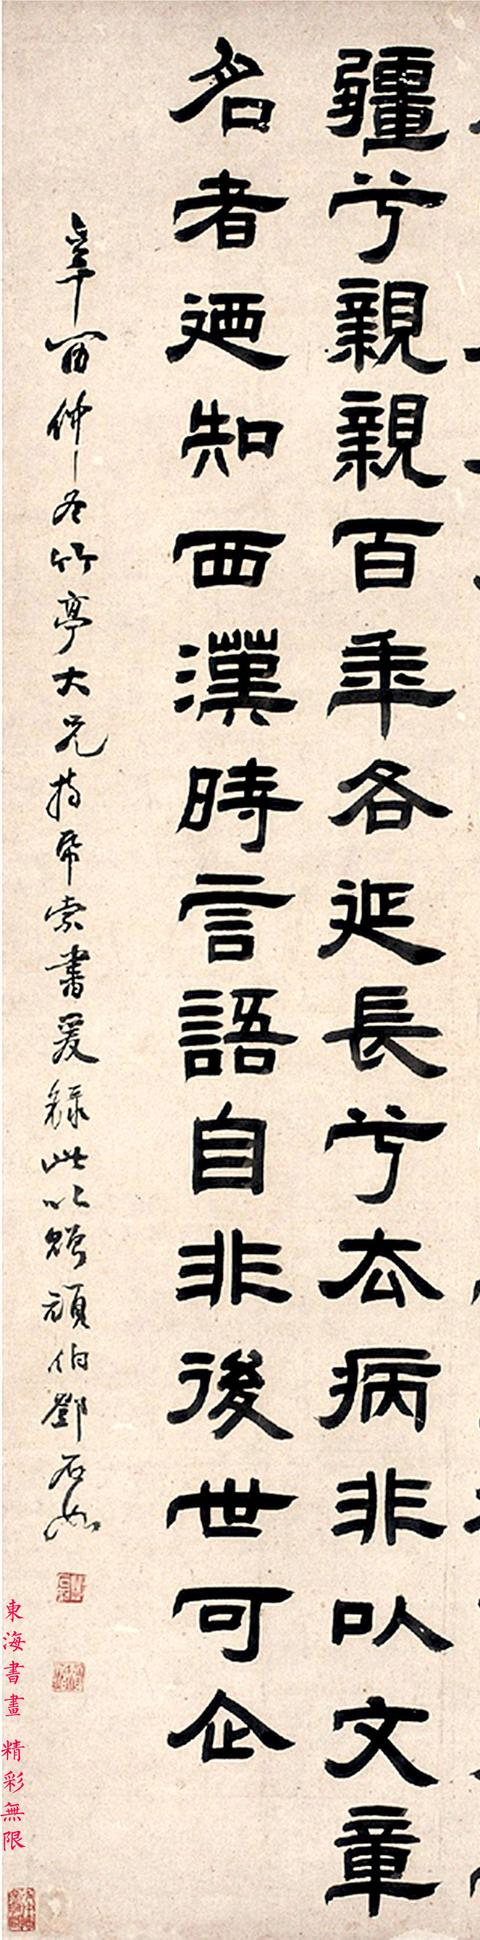 疆兮親親百年各延長兮去病非以文章
名者廼知西漢時言語自非後世可企
辛酉仲冬竹亭大兄持帋索書爰録此以贈頑伯鄧石如
東海書畫 精彩無限